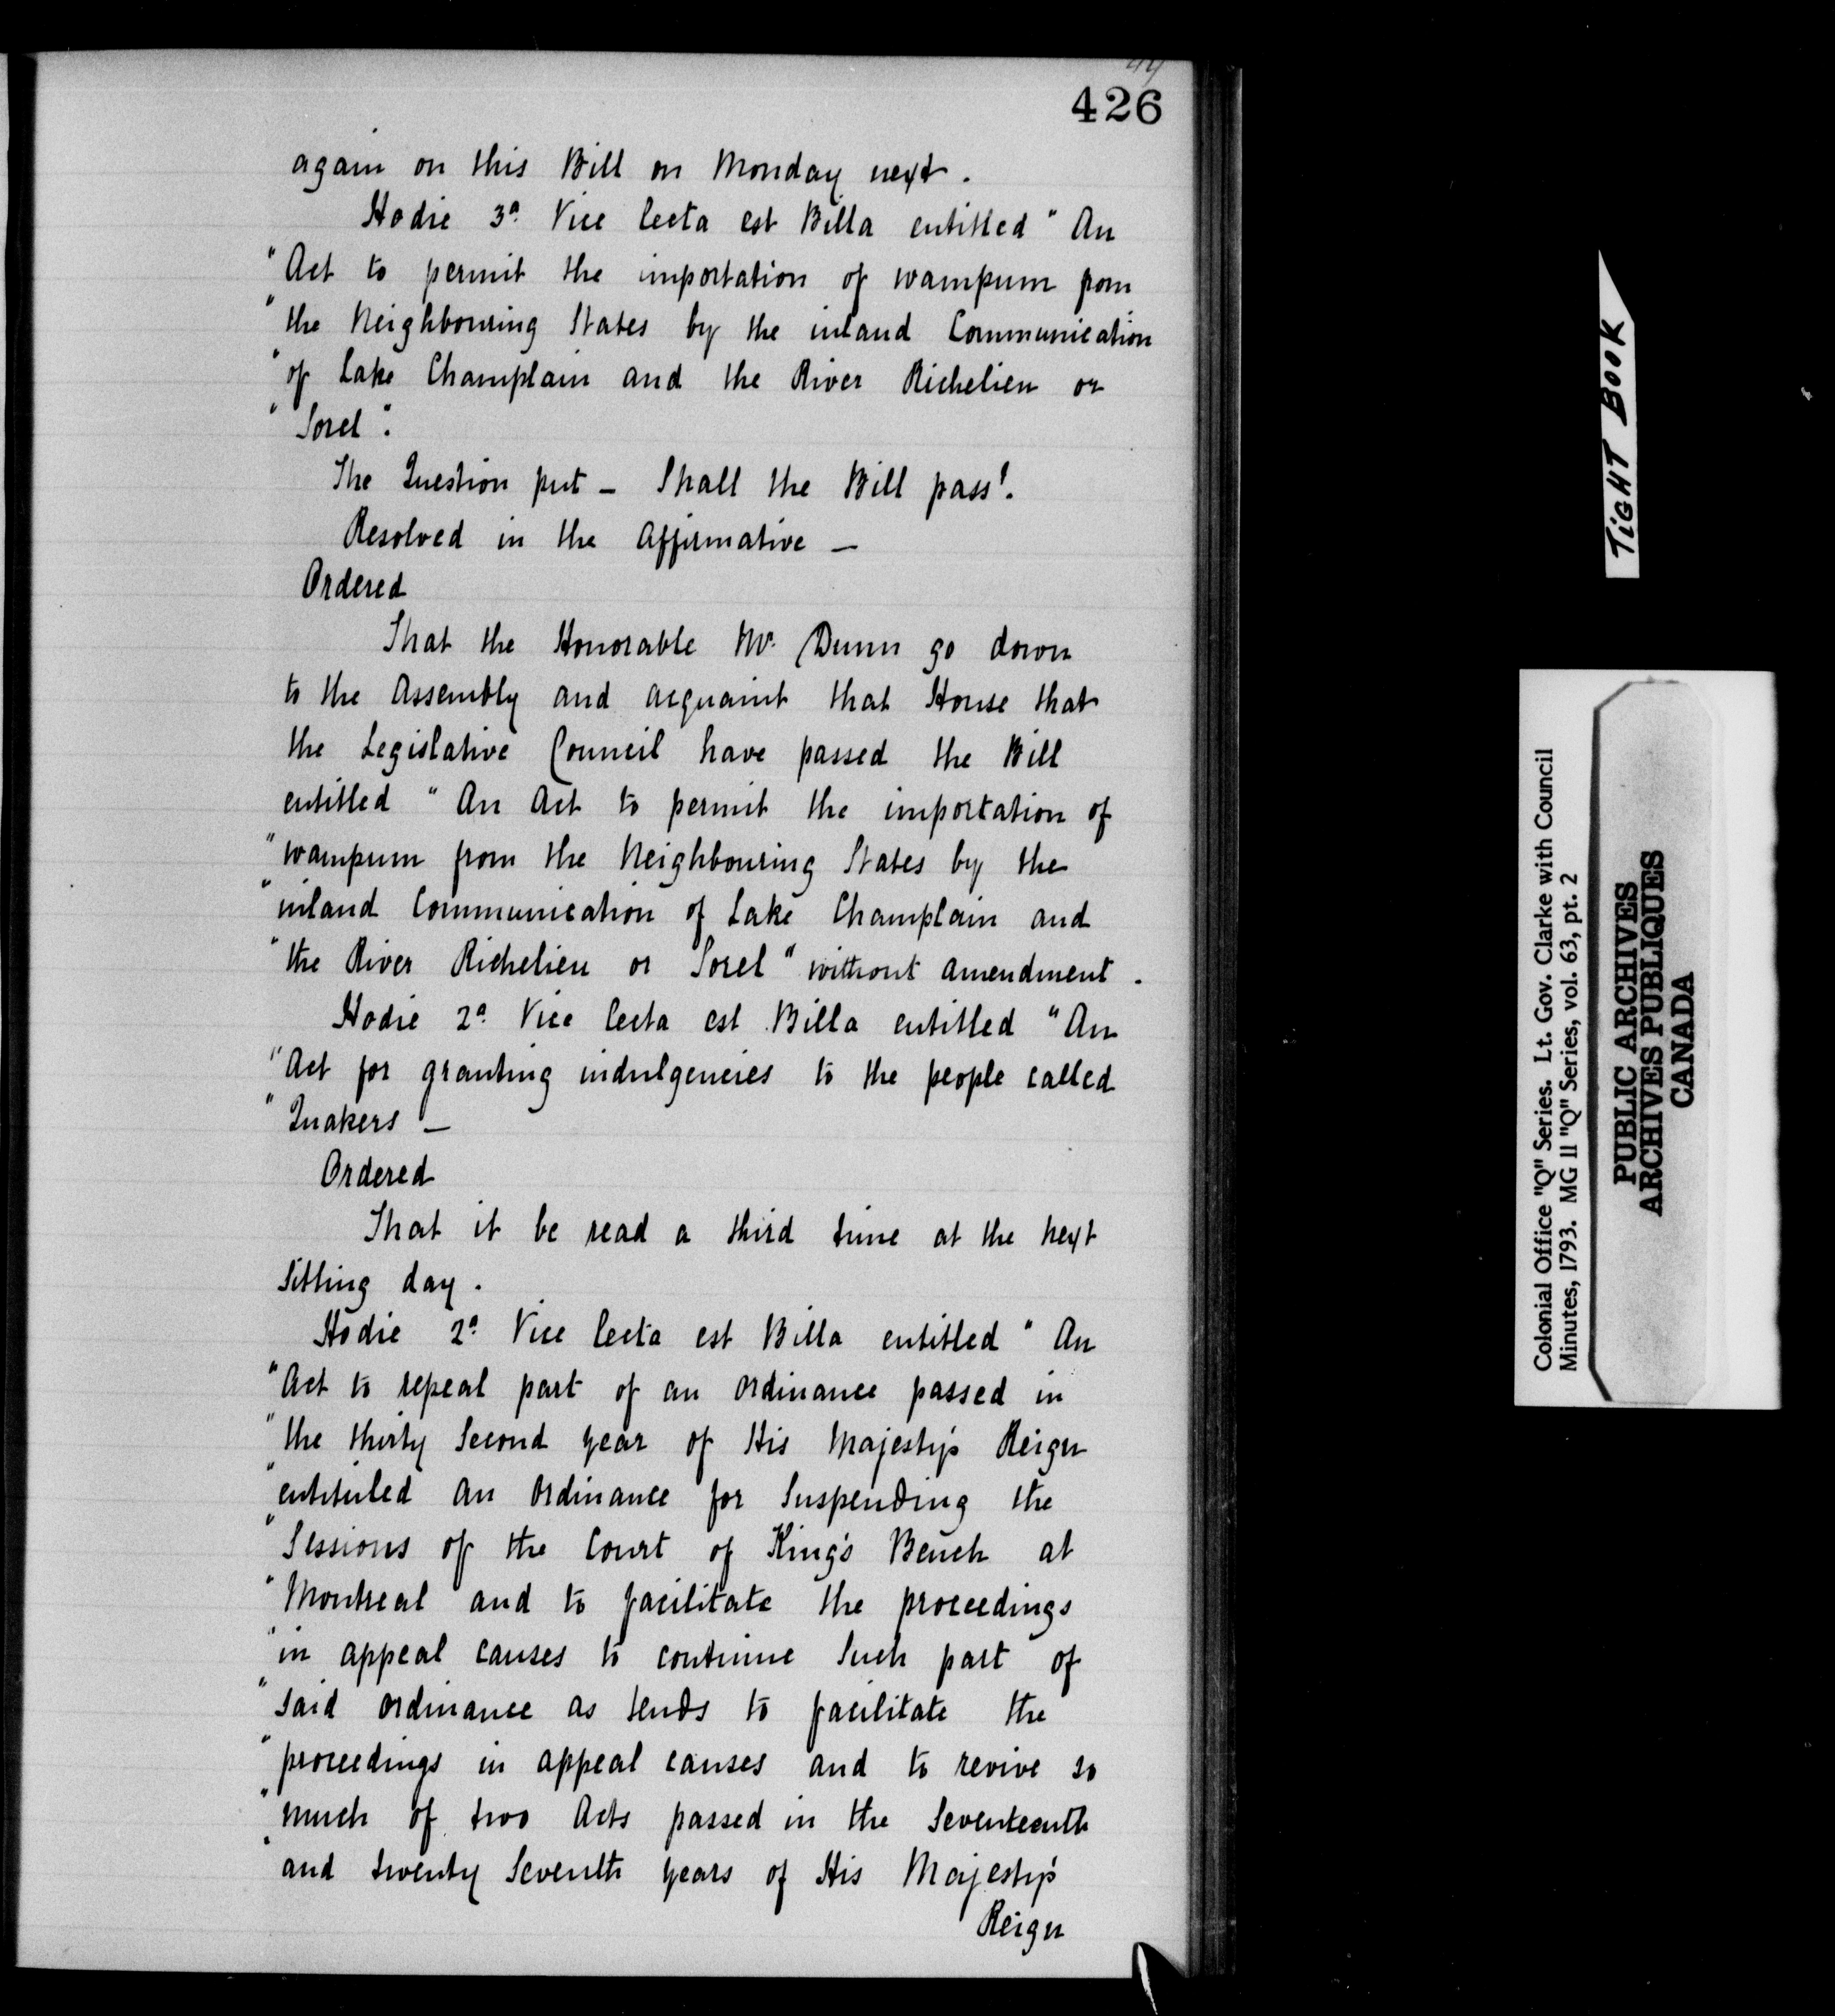 426
again on this Bill on Monday next.
Hodie 3ª Vice lecta est Billa entitled "An
"Act to permit the importation of wampum from
"the Neighbouring States by the inland Communication
"of Lake Champlain and the River Richelieu or
"Sorel".
The Question put — Shall the Bill pass?
Resolved in the affirmative —
Ordered
That the Honorable Mr. Dunn go down
to the Assembly and acquaint that House that
the Legislative Council have passed the Bill
entitled "An Act to permit the importation of
"wampum from the Neighbouring States by the
"inland Communication of Lake Champlain and
"the River Richelieu or Sorel" without amendment.
Hodie 2ª Vice lecta est Billa entitled "An
"Act for granting indulgencies to the people called
"Quakers —
Ordered
That it be read a third time at the next
Sitting day.
Hodie 2ª Vice lecta est Billa entitled "An
"Act to repeal part of an Ordinance passed in
"the thirty Second year of His Majesty's Reign
"entituled an Ordinance for Suspending the
"Sessions of the Court of King's Bench at
"Montreal and to facilitate the proceedings
"in appeal causes to continue Such part of
"said ordinance as tends to facilitate the
"proceedings in appeal causes and to revive so
"much of two Acts passed in the Seventeenth
"and twenty Seventh years of His Majesty's
Reign
TIGHT BOOK
Colonial Office "Q" Series. Lt. Gov. Clarke with Council
Minutes, 1793. MG 11 "Q" Series, vol. 63, pt. 2
PUBLIC ARCHIVES
ARCHIVES PUBLIQUES
CANADA